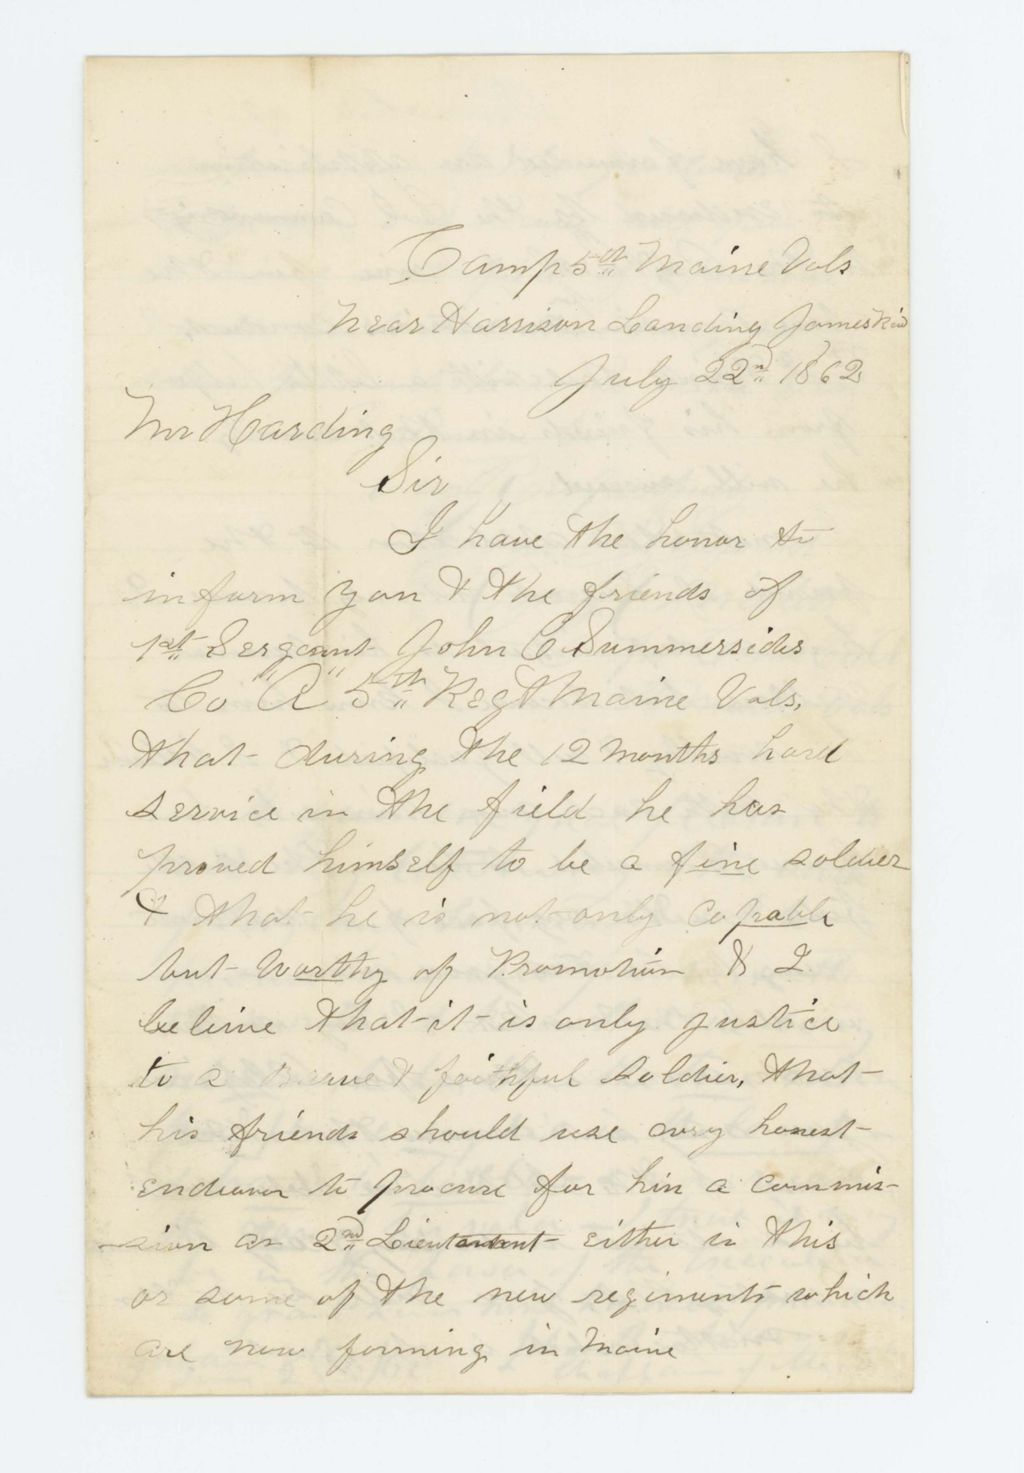 Camp 5th Maine Vols
Near Harrison Landing James Riv
July 22nd 1862
Mr Harding
Sir
I have the honor to
inform you & the friends of
1st Sergeant John C Summersides
Co "A" 5th Regt Maine Vols,
that during the 12 months hard
service in the field he has
proved himself to be a fine soldier
& that he is not only capable
but worthy of Promotion & I
beleive that it is only justice
to a Brave & faithful soldier, that
his friends should use every honest
endeavor to procure for him a commis-
-sion as 2nd Lieutentent either in this
or some of the new regiments which
are now forming in Maine